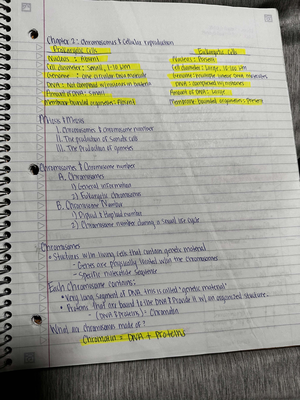 Chapter 2: Chromosomes & Cellular reproduction
Prokaryotic Cells Eukaryotic Cells
Nucleus: Absent Nucleus: Present
Cell diameter: Small, 1-10 μm Cell diameter: Large, 10-100 μm
Genome: one circular DNA molecule Genome: multiple linear DNA molecules
DNA: Not complexed w/ histones in bacteria DNA: complexed w/ histones
Amount of DNA: Small Amount of DNA: Large
Membrane bounded organelles: Absent Membrane bounded organelles: Present
I. Chromosomes & chromosome number
II. The production of somatic cells
III. The Production of gametes
Chromosomes & Chromosome number
A. Chromosomes
1) General information
2) Eukaryotic chromosomes
B. Chromosome Number
1) Diploid & Haploid number
2) Chromosome number during a sexual life cycle
Chromosomes
• Structures w/in living cells that contain genetic material
- Genes are physically located w/in the chromosomes
- Specific nucleotide sequence
Each Chromosome contains:
• Very long segment of DNA, this is called "genetic material"
• Proteins that are bound to the DNA & Provide it w/ an organized structure.
- (DNA & Proteins) = Chromatin
What are chromosomes made of?
Chromatin = DNA + Proteins